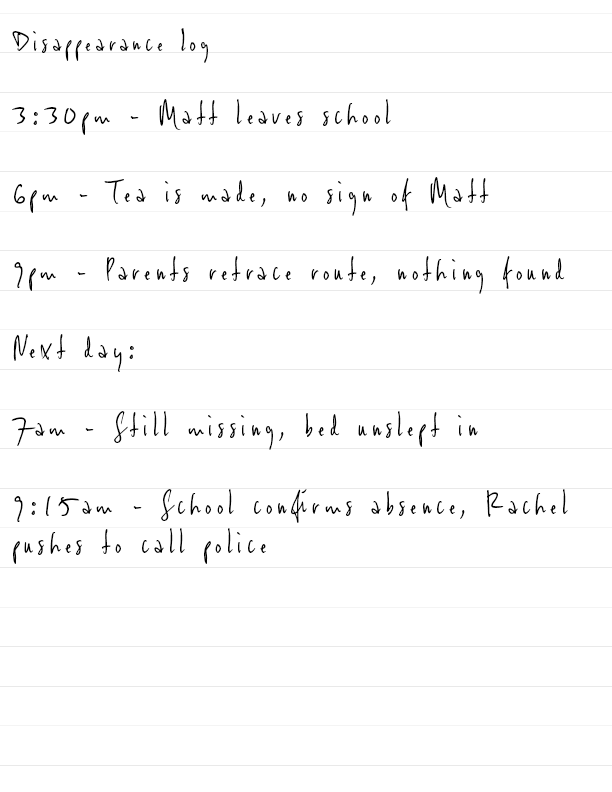 Disappearance log
3:30pm - Matt leaves school
6pm - Tea is made, no sign of Matt
9pm - Parents retrace route, nothing found
Next day:
7am - Still missing, bed unslept in
9:15am - School confirms absence, Rachel
pushes to call police